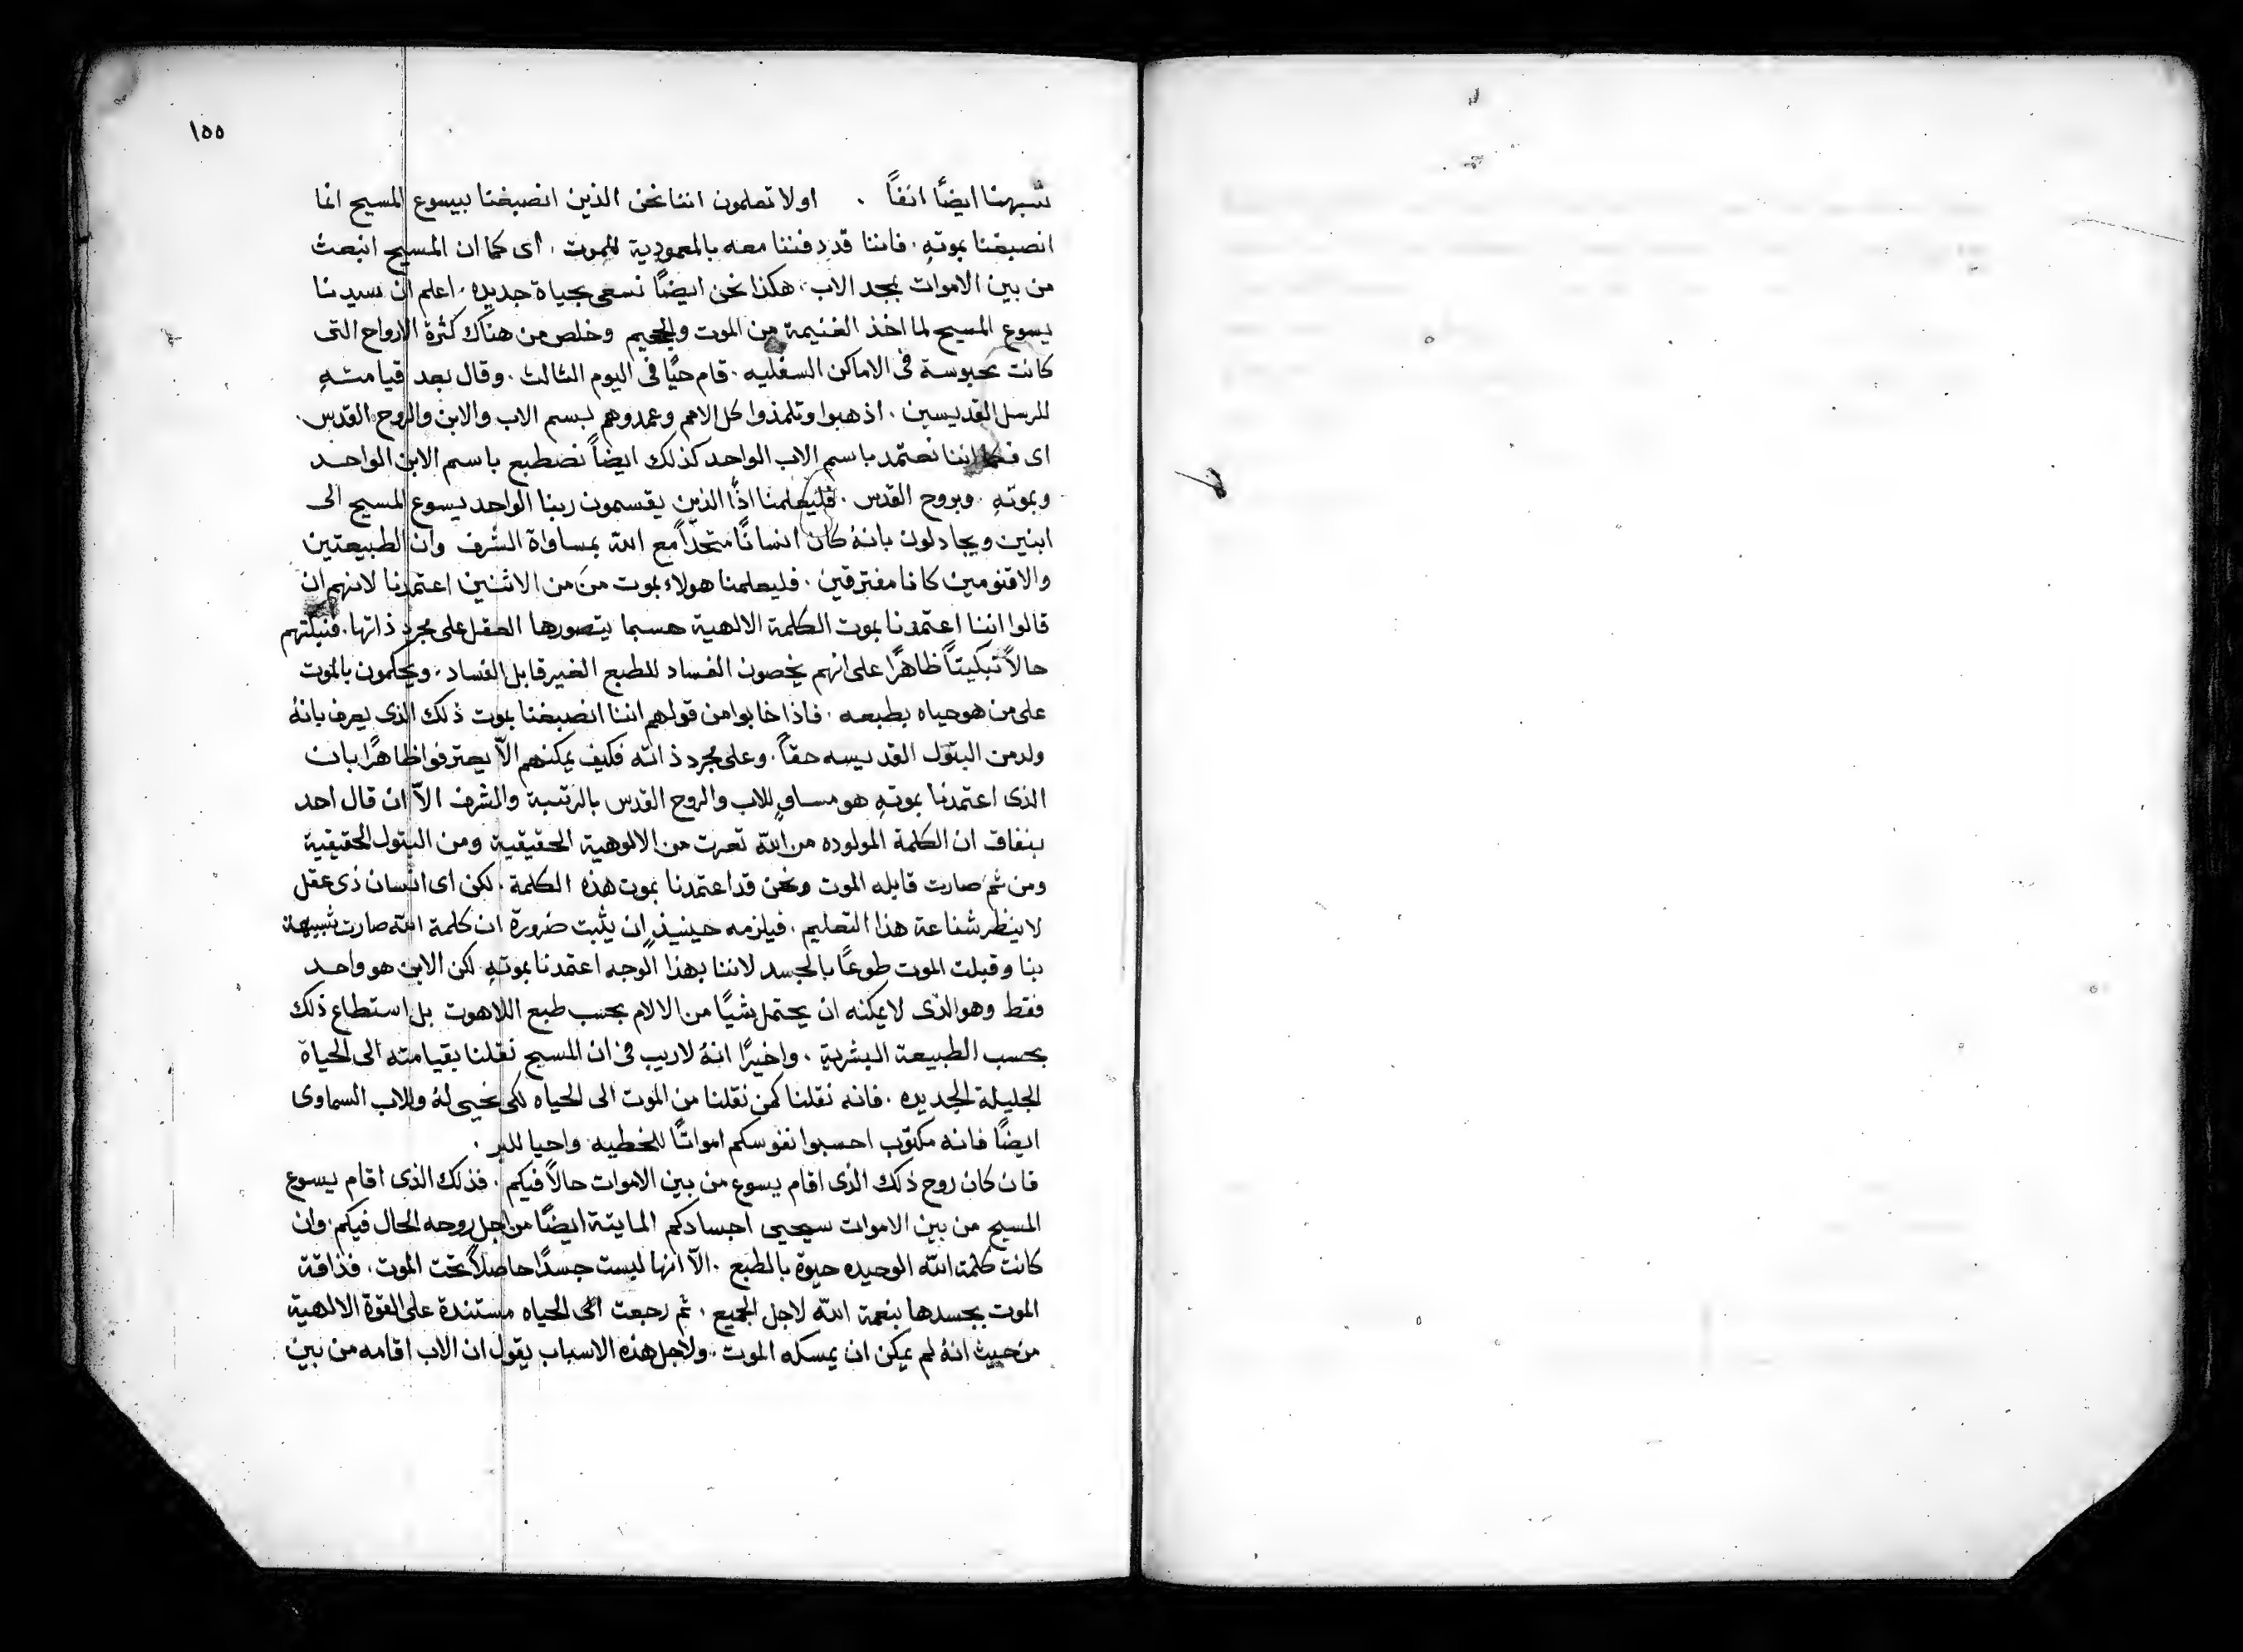 ١٥٥
شبهنا ايضًا انفًا . اولا تعلمون اننا نحن الذين انصبغنا بيسوع المسيح انما
انصبغنا بموتهِ . فاننا قد دفننا معه بالمعمودية للموت . اى كما ان المسيح انبعث
من بين الاموات بمجد الاب . هكذا نحن ايضًا نسعى بحياة جديده . اعلم ان سيدنا
يسوع المسيح لما اخذ الغنيمة من الموت والجحيم وخلص من هناك كثرة الارواح التى
كانت محبوسة فى الاماكن السفليه . قام حيًا فى اليوم الثالث . وقال بعد قيامتهِ
للرسل القديسين . اذهبوا وتلمذوا كل الامم وعمدوهم بسم الاب والابن والروح القدس .
اى فكما اننا نعتمد باسم الاب الواحد كذلك ايضاً نصطبع باسم الابن الواحد
وبموتهِ . وبروح القدس . فليعلمنا اذًا الذين يقسمون ربنا الواحد يسوع المسيح الى
ابنين ويجادلون بانهُ كان انسانًا متحدًا مع الله بمساواة الشرف وان الطبيعتين
والاقنومين كانا مفترقين . فليعلمنا هولاء بموت مَن من الاثنين اعتمدنا لانهم ان
قالوا اننا اعتمدنا بموت الكلمة الالهية حسبما يتصورها العقل على مجرد ذاتها . فنبكتهم
حالاً تبكيتاً ظاهرًا على انهم يخصون الفساد للطبع الغير قابل الفساد . ويحكمون بالموت
على من هو حياه بطبعه . فاذا خابوا من قولهم اننا انصبغنا بموت ذلك الذى يعرف بانهُ
ولد من البتول القديسه حقاً . وعلى مجرد ذاته فكيف يمكنهم الاّ يعترفوا ظاهرًا بان
الذى اعتمدنا بموتهِ هو مساوٍ للاب والروح القدس بالرتبة والشرف الاّ ان قال احد
بنفاق ان الكلمة المولوده من الله تعرت من الالوهية الحقيقية ومن البتول الحقيقية
ومن ثم صارت قابله الموت ونحن قد اعتمدنا بموت هذه الكلمة . لكن اى انسان ذى عقل
لا ينظر شناعة هذا التعليم . فيلزمه حينيذٍ ان يثبت ضرورة ان كلمة الله صارت شبيهة
بنا وقبلت الموت طوعًا بالجسد لاننا بهذا الوجه اعتمدنا بموتهِ لكن الابن هو واحد
فقط وهو الذى لا يمكنه ان يحتمل شيًا من الالام بحسب طبع اللاهوت بل استطاع ذلك
بحسب الطبيعة البشرية . واخيرًا انهُ لاريب فى ان المسيح نقلنا بقيامته الى الحياة
الجليلة الجديده . فانه نقلنا كمن نقلنا من الموت الى الحياه لكى نحيى لهُ وللاب السماوى
ايضًا فانه مكتوب احسبوا نفوسكم امواتًا للخطيه واحيا للبر .
فان كان روح ذلك الذى اقام يسوع من بين الاموات حالاً فيكم . فذلك الذى اقام يسوع
المسيح من بين الاموات سيحيى اجسادكم المايتة ايضًا من اجل روحه الحال فيكم . وان
كانت كلمة الله الوحيده حيوة بالطبع . الاّ انها ليست جسدًا حاصلاً تحت الموت . فذاقة
الموت بجسدها بنعمة الله لاجل الجميع . ثم رجعت الى الحياه مستندة على القوة الالهية
من حيث انهُ لم يمكن ان يمسكه الموت . ولاجل هذه الاسباب يقول ان الاب اقامه من بين